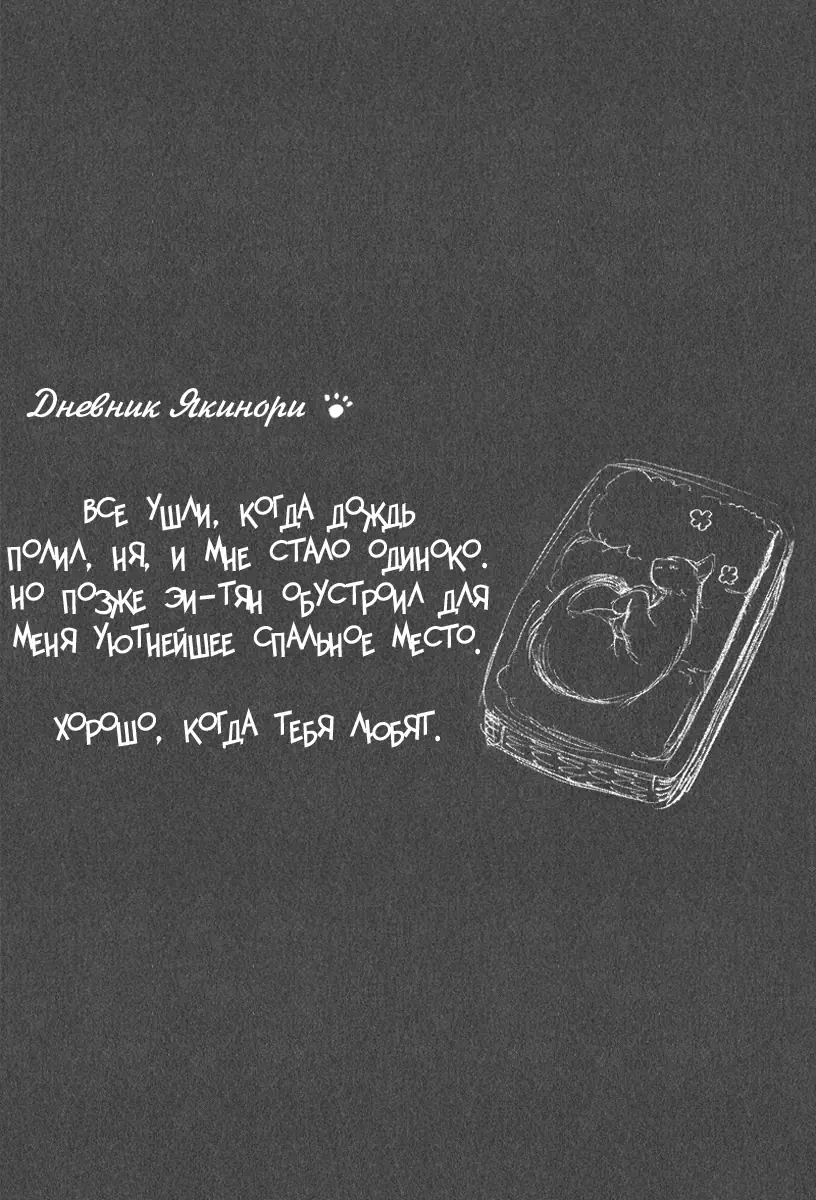 Дневник Якинори
ВСЕ УШЛИ, КОГДА ДОЖДЬ
ПОЛИЛ, НЯ, И МНЕ СТАЛО ОДИНОКО.
НО ПОЗЖЕ ЭИ-ТЯН ОБУСТРОИЛ ДЛЯ
МЕНЯ УЮТНЕЙШЕЕ СПАЛЬНОЕ МЕСТО.
ХОРОШО, КОГДА ТЕБЯ ЛЮБЯТ.